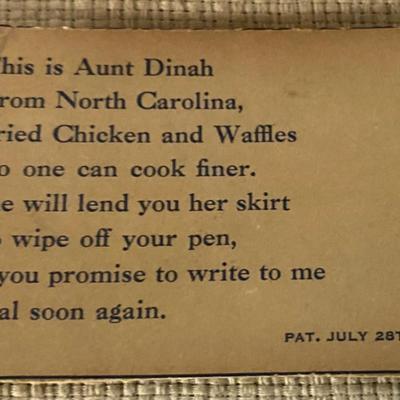 This is Aunt Dinah
rom North Carolina,
ried Chicken and Waffles
o one can cook finer.
e will lend you her skirt
o wipe off your pen,
you promise to write to me
al soon again.
PAT. JULY 28T